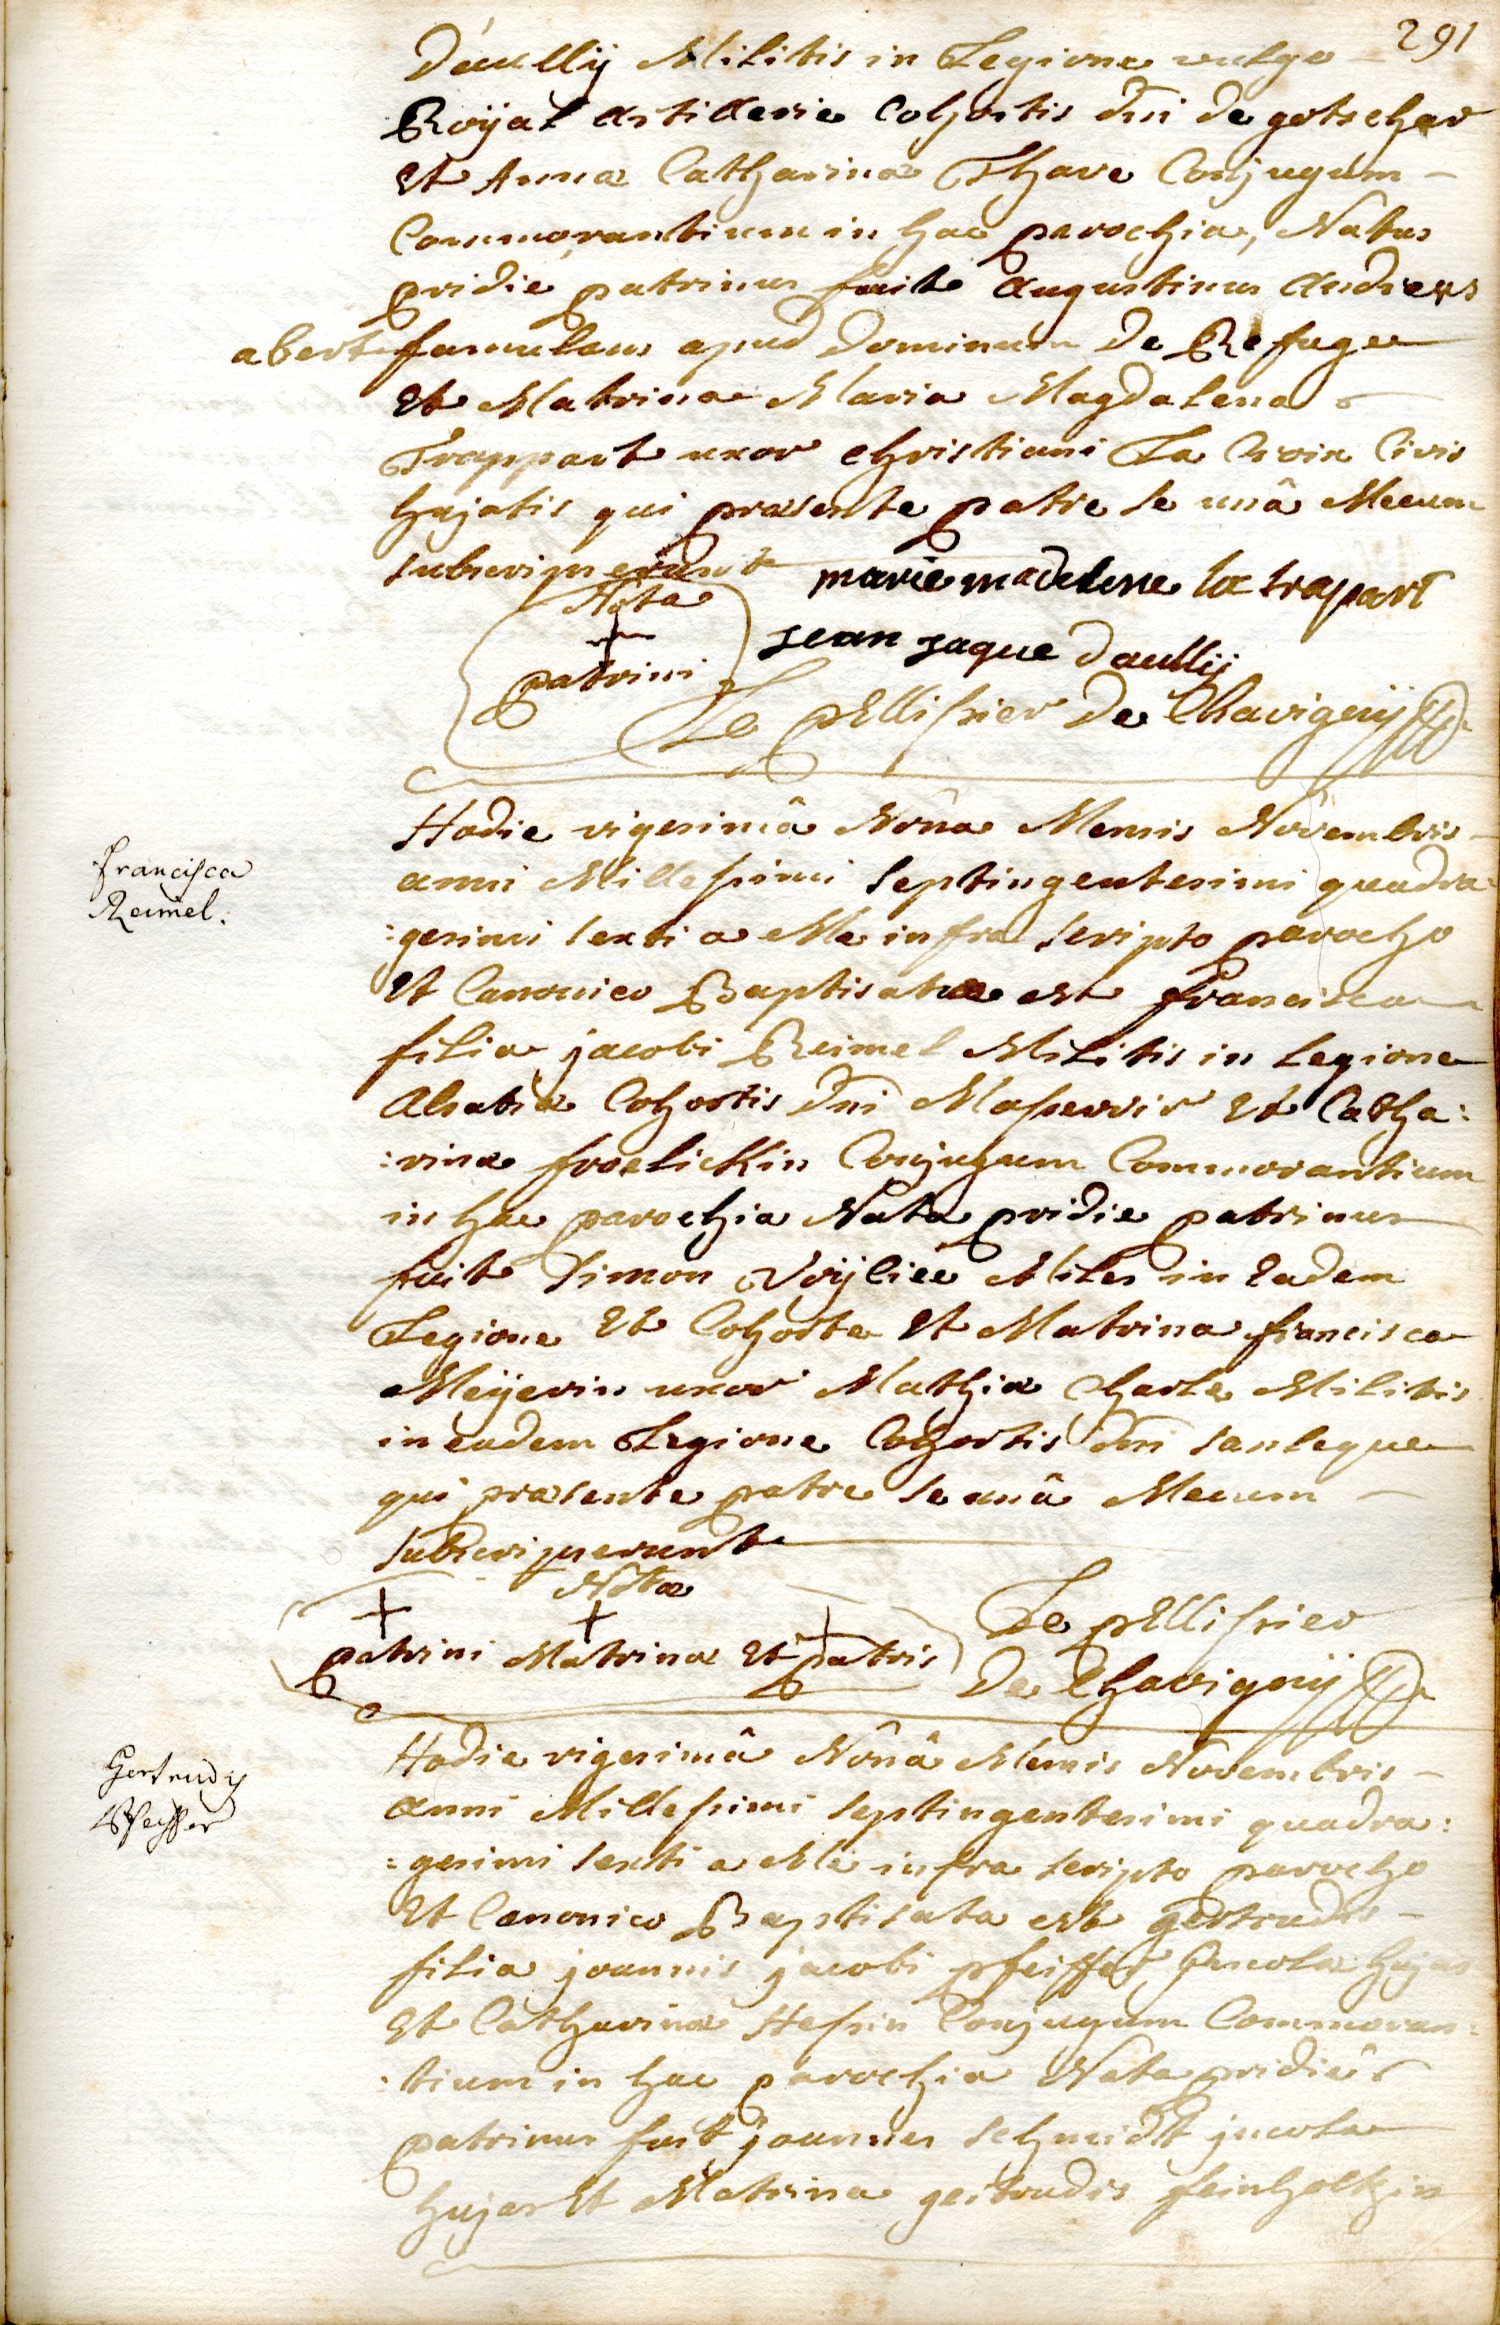 291
Daullÿ Militis in Legione vulgo -
Roÿal artillerie Cohortis dni de gotscher
Et Annæ Catharinæ Thave Conjugum -
Commorantium in hac parochia, Natus
pridie patrinus fuit augustinus andrews
abest famulans apud dominum De Refuge
Et Matrina Maria Magdalena
Trappart uxor christiani La Croix Civis
hujatis qui præsente patre se unâ Mecum
subscripserunt
marie madelene la trapart
Nota
+
patrini
jean jaque daullÿ
Le pEllissier De Chavignÿ
Francisca
Reimel.
Hodie vigesimâ Nôna Mensis Novembris -
anni Millesimi septingentesimi quadra:
:gesimi sexti a Me infra scripto parocho
Et Canonico Baptisata est francisca
filia jacobi Reimel Militis in Legione
Alsatiæ Cohortis Dni Masservir Et Catha:
:rinæ froelickin Conjugum Commorantium
in hac parochia Nata pridie patrinus
fuit Simon Miles in Eadem
Legione Et Cohorte Et Matrina francisca
Meÿerin uxor Mathiæ charle Militis
in eadem Legione Cohortis dni sanleque
qui præsente patre se unâ Mecum -
subscripserunt
Nota
+ + +
patrini Matrinæ Et patris
Le pEllissier
De Chavignÿ
Gertrudis
Pfeiffer
Hodie vigesimâ Nônâ Mensis Novembris -
anni Millesimi septingentesimi quadra:
:gesimi sexti a Me infra scripto parocho
Et Canonico Baptisata est gertrudis -
filia joannis jacobi pfeiffer jncolæ hujas
Et Catharinæ Hessin Conjugum Commoran:
:tium in hac parochia Nata pridie
patrinus fuit joannes schmidt jncola
hujas Et Matrina gertrudis feinholtzin